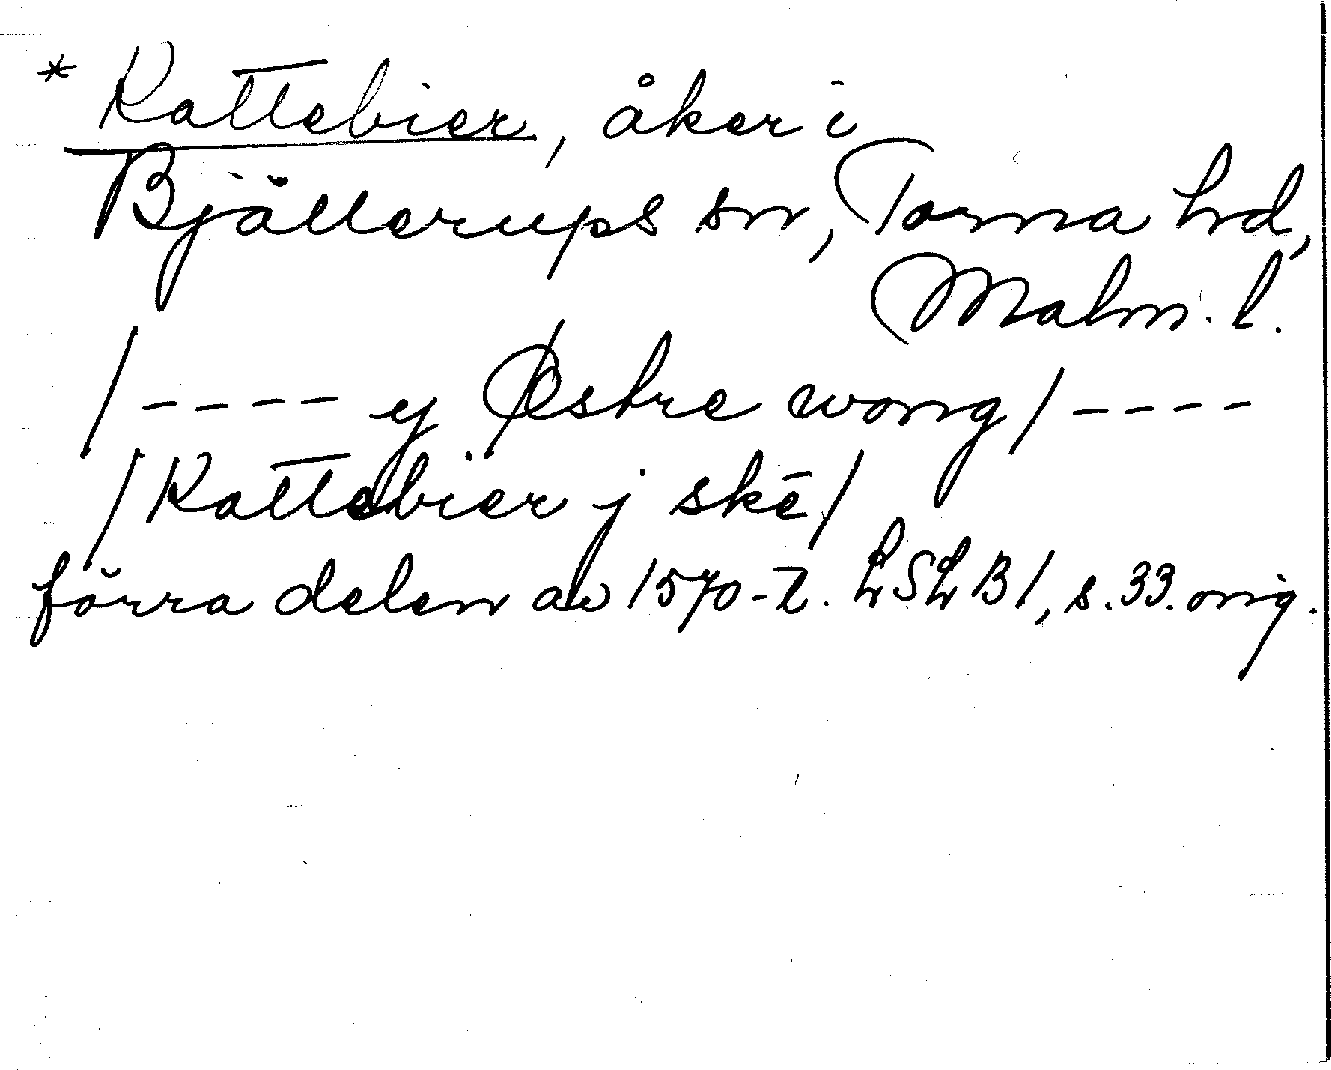 * Kattebier, åker i
Bjällerups sn, Torna hd,
Malm. l.
/---- ej Østre wong/----
/Kattebier j skē/
förra delen av 1570-t. LSLB1, s. 33. orig.